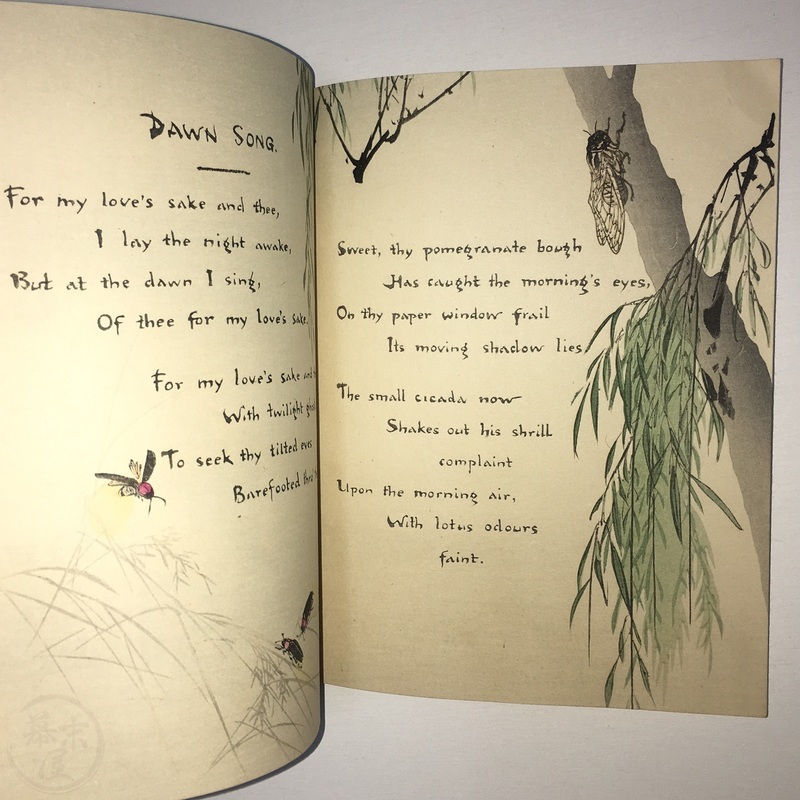 DAWN SONG.
For my love's sake and thee,
I lay the night awake,
But at the dawn I sing,
Of thee for my love's sake.
For my love's sake and
With twilight
To seek thy tilted eves
Barefooted
Sweet, thy pomegranate bough
Has caught the morning's eyes,
On thy paper window frail
Its moving shadow lies.
The small cicada now
Shakes out his shrill
complaint
Upon the morning air,
With lotus odours
faint.